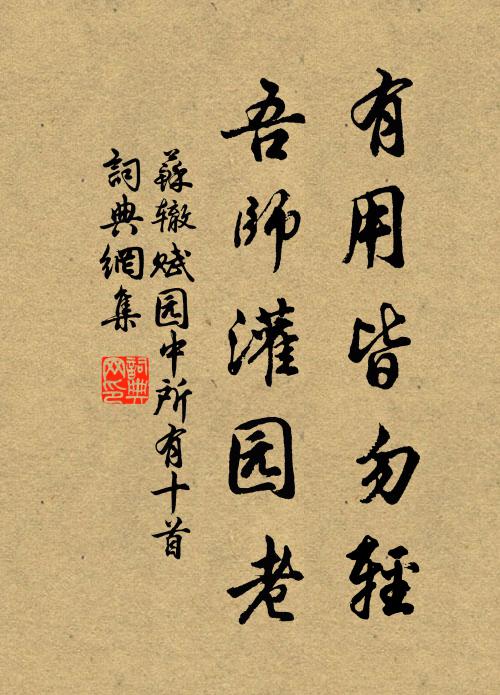 有用皆勿輕
吾師灌园老
蘇辙赋园中所有十首
詞典網集
詞典网印